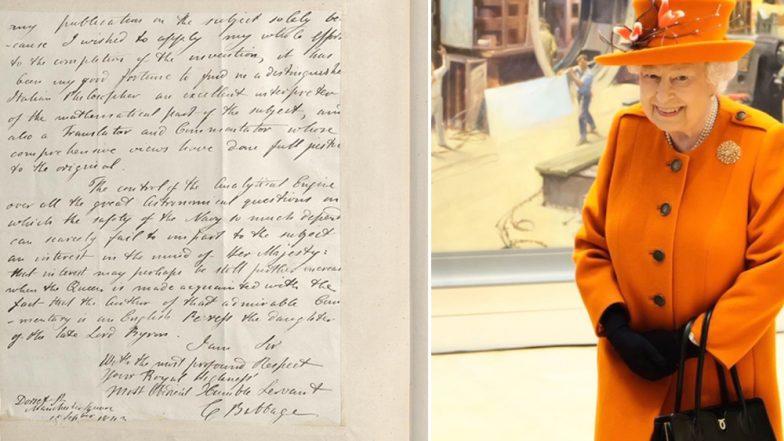 my publications on the subject solely be-
-cause I wished to apply my whole efforts
to the completion of the invention, it has
been my good fortune to find in a distinguished
Italian Philosopher an excellent interpreter
of the mathematical part of the subject, and
also a Translator and Commentator whose
comprehensive views have done full justice
to the original.
The control of the Analytical Engine
over all the great Astronomical questions on
which the safety of the Navy so much depends
can scarcely fail to impart to the subject
an interest in the mind of Her Majesty:
that interest may perhaps be still further increased
when the Queen is made acquainted with the
fact that the author of that admirable Com
-mentary is an English Peeress the daughter
of the late Lord Byron.
I am Sir
With the most profound Respect
Your Royal Highness'
Most Obedient Humble Servant
C Babbage
Dorset St
Manchester Square